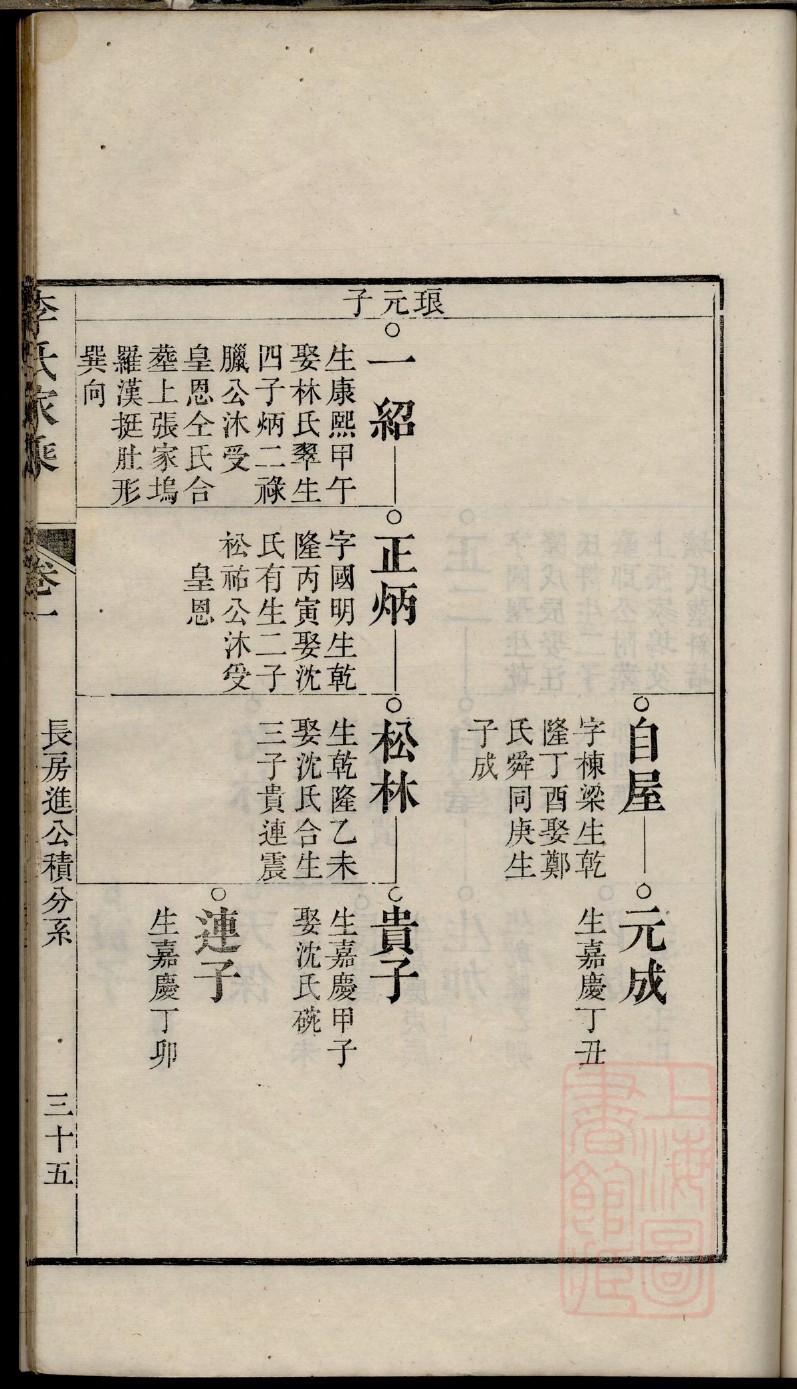 琅元子
自屋
字棟梁生乾
隆丁酉娶鄭
氏舜同庚生
子成
元成
生嘉慶丁丑
一紹
生康熙甲午
娶林氏翠生
四子炳二祿
臘公沐受
皇恩仝氏合
塟上張家塢
羅漢挺肚形
巽向
正炳
字國明生乾
隆丙寅娶沈
氏有生二子
松祐公沐受
皇恩
松林
生乾隆乙未
娶沈氏合生
三子貴連震
貴子
生嘉慶甲子
娶沈氏碗
連子
生嘉慶丁卯
李氏家乘
卷一
長房進公積分系
三十五
上海圖
書館